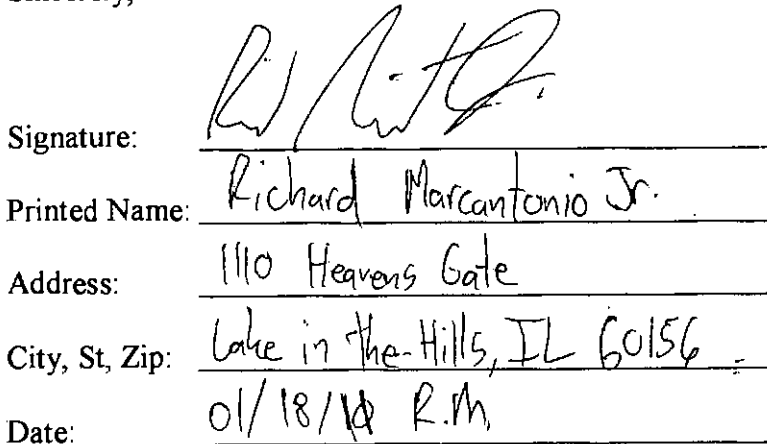 Signature:
Printed Name: Richard Marcantonio Jr.
Address: 1110 Heavens Gate
City, St, Zip: Lake in the Hills, IL 60156
Date: 01/18/ R.M.